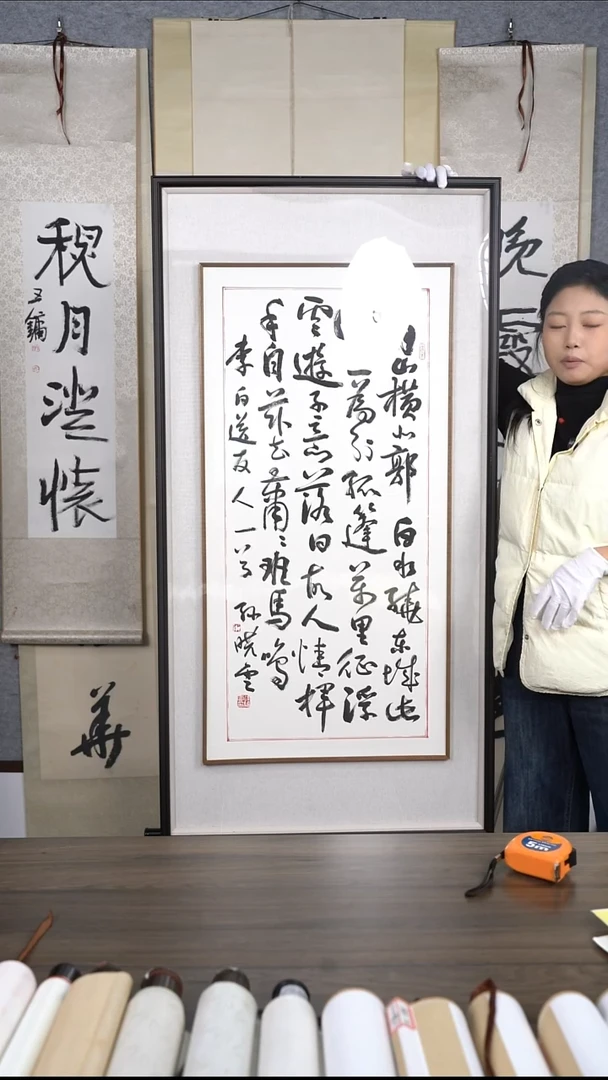 晚
山橫北郭白水繞東城此
一為別孤篷萬里征浮
雲遊子意落日故人情揮
手自茲去蕭〻班馬鳴
李白送友人一首 孫曉雲
月澄懷
華
5m